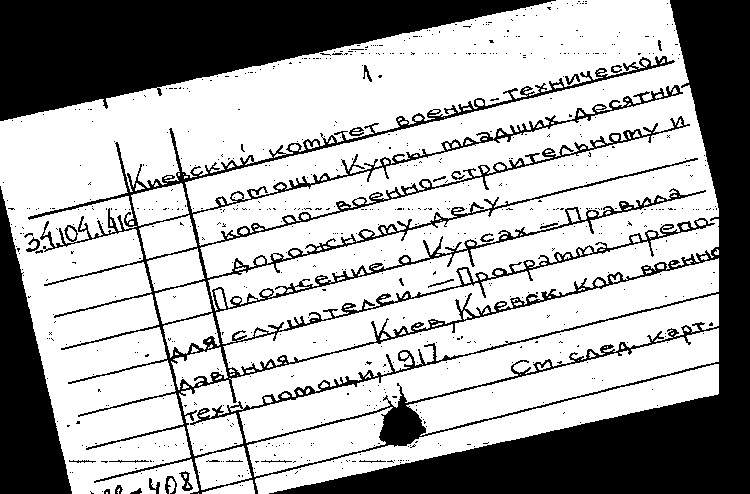 1.
Киевский комитет военно-технической
помощи. Курсы младших десятни-
ков по военно-строительному и
дорожному делу.
34.104.1416
Положение о Курсах. — Правила
для слушателей. — Программа препо-
давания. Киев, Киевск. ком. военно
техн. помощи, 1917.
См. след. карт.
408